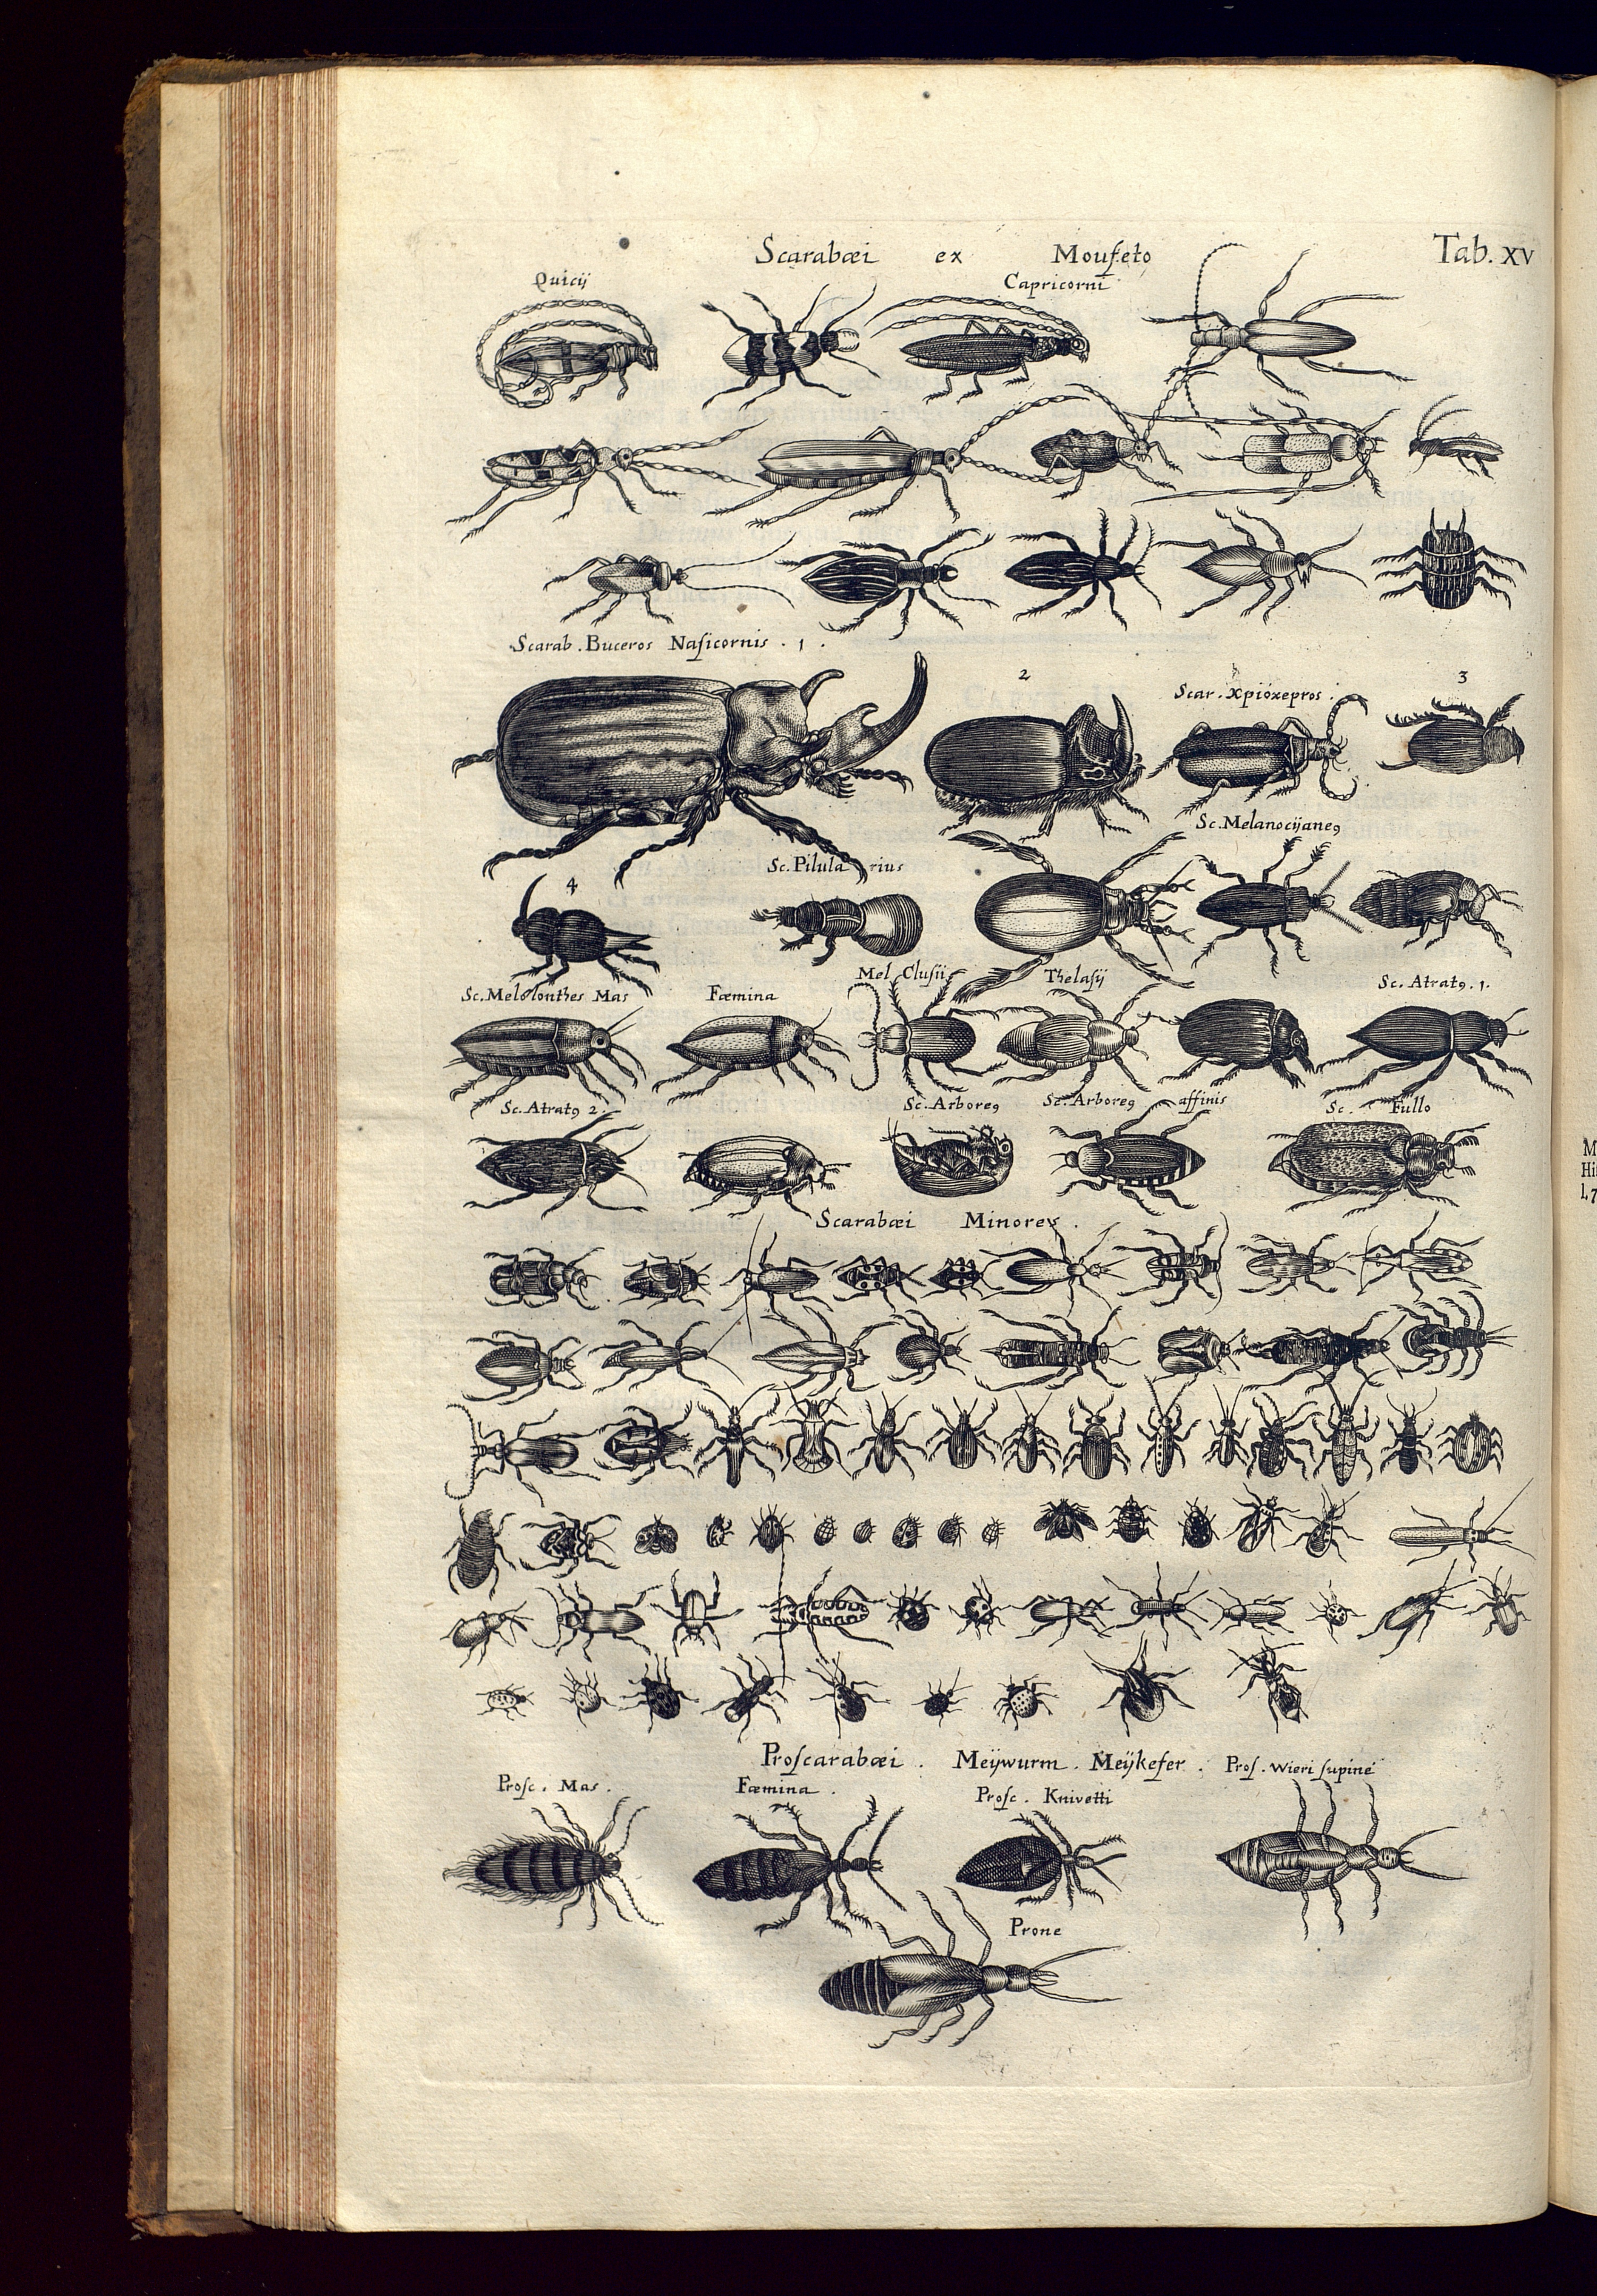 Scarabæi ex Moufeto Tab. XV
Quicij Capricorni
Scarab. Buceros Naſicornis. 1.
2 Scar. Xpióxepros. 3
Sc. Melanocijane9
4 Sc. Pilularius
Sc. Melolonthes Mas Fæmina Mel. Clusii Thelaſij Sc. Atrat9. 1.
Sc. Atrat9 2. Sc. Arbore9 Sc. Arbore9 affinis Sc. Fullo
Scarabæi Minores.
Proſcarabæi. Meijwurm. Meijkefer. Proſ. Wieri ſupinè
Proſc. Mas. Fæmina. Proſc. Knivetti
Prone